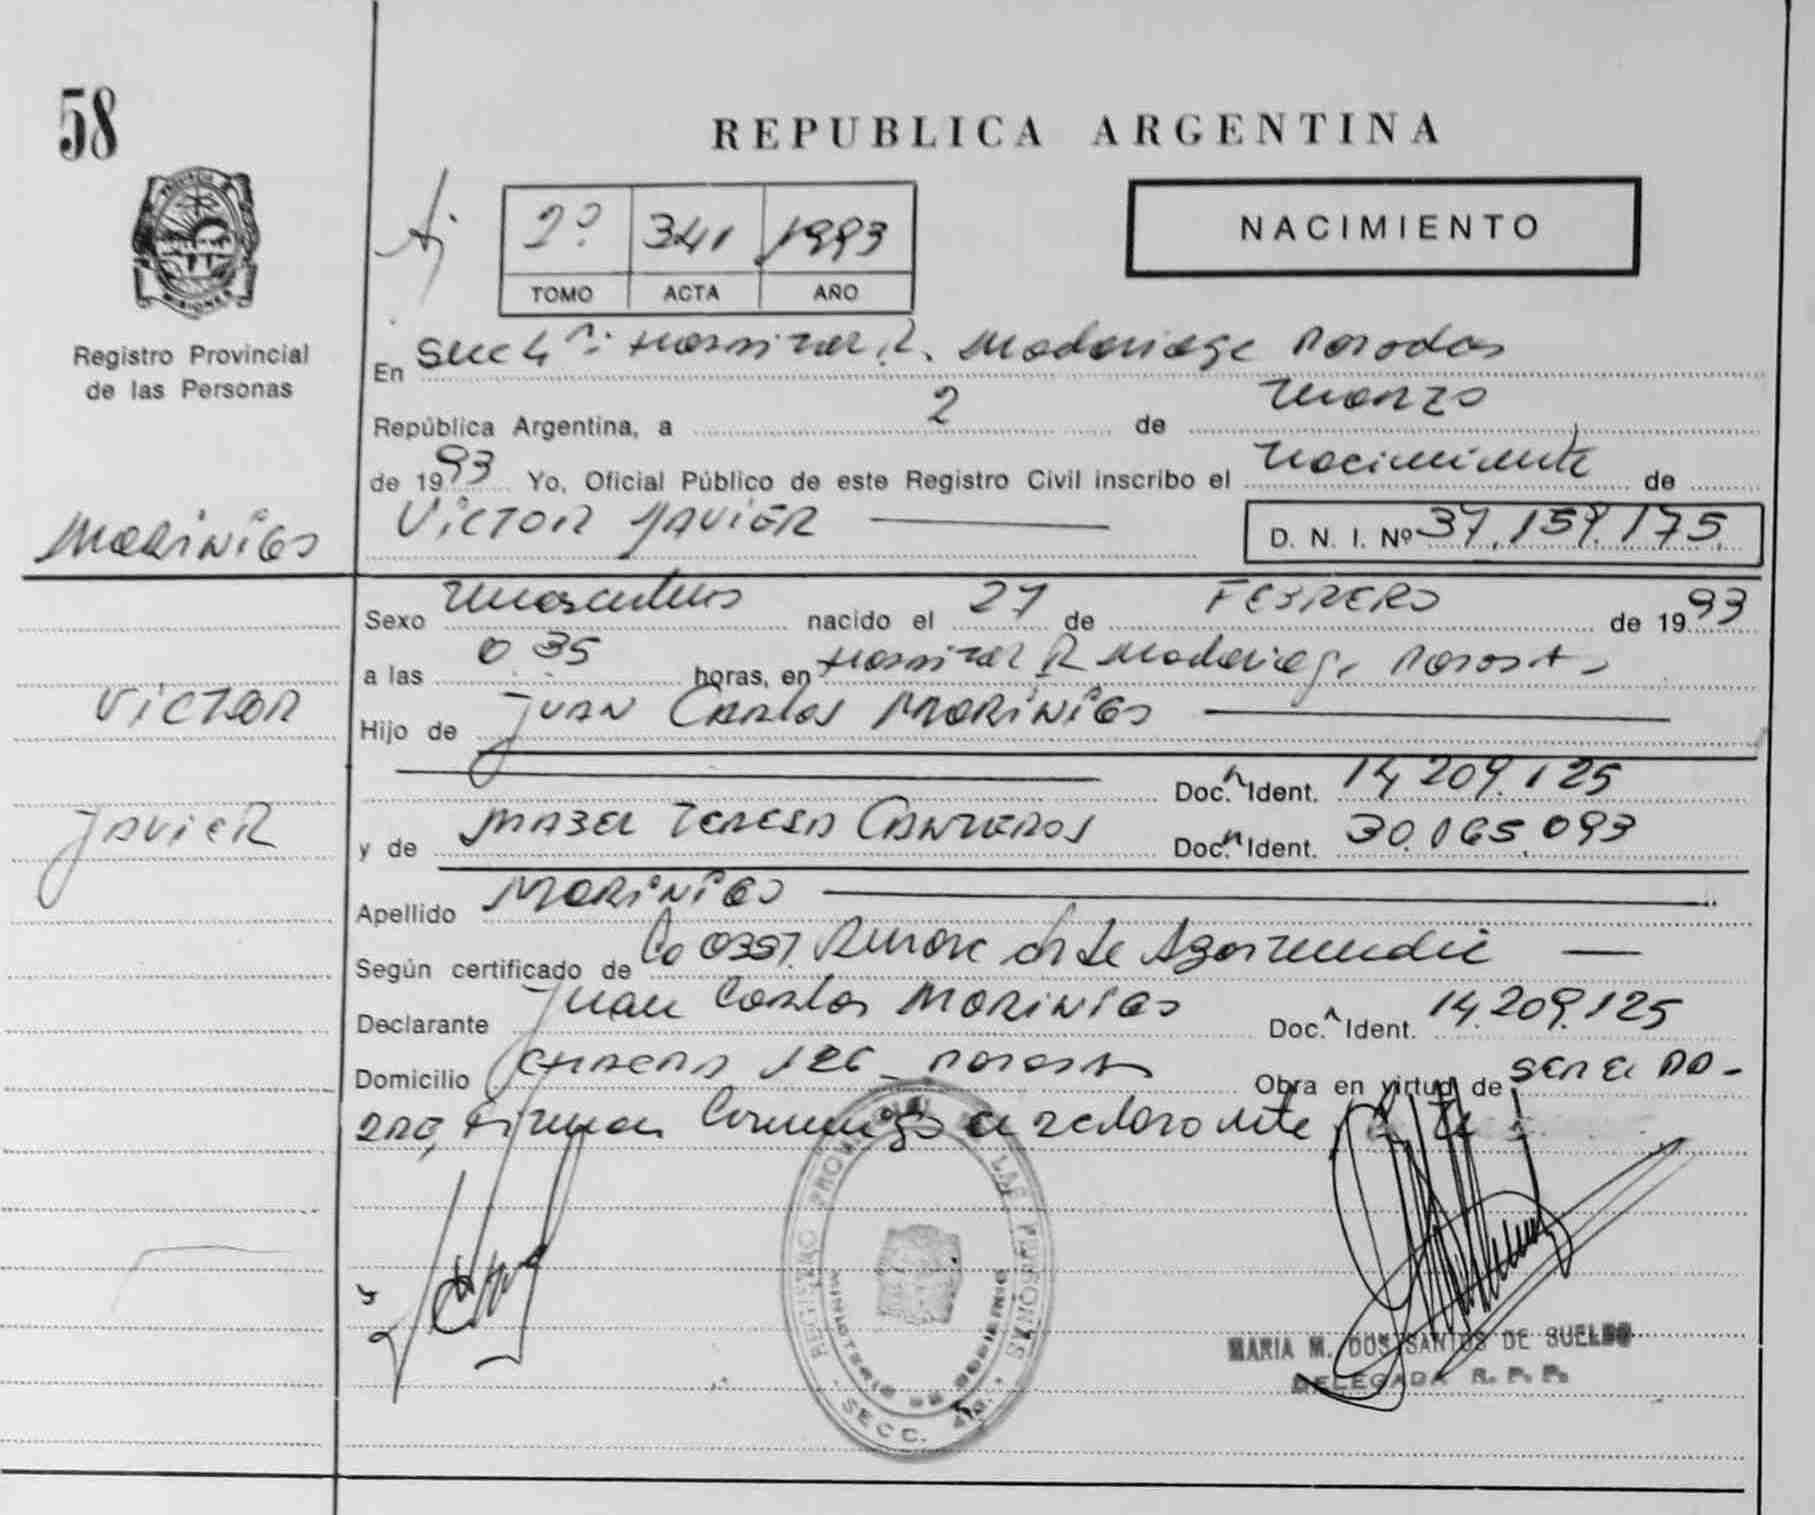 58
REPUBLICA ARGENTINA
2º 341 1993
TOMO ACTA AÑO
NACIMIENTO
PROVINCIA DE MISIONES
Registro Provincial
de las Personas
En Secc 4ª: Hospital R. Madariaga Posadas
República Argentina, a 2 de Marzo
de 1993 Yo, Oficial Público de este Registro Civil inscribo el nacimiento de
MORINIGO VICTOR JAVIER D. N. I. Nº 37.159.175.
Sexo masculino nacido el 27 de FEBRERO de 1993
a las 0.35 horas, en Hospital R Madariaga Posadas
VICTOR
Hijo de Juan Carlos MORINIGO
Doc. Ident. 14.209.125
JAVIER
y de MABEL TERESA CANTEROS Doc. Ident. 30.065.093
Apellido MORINIGO
Según certificado de Co 0357. de
Declarante Juan Carlos MORINIGO Doc. Ident. 14.209.125
Domicilio CHACRA 126 - Posadas Obra en virtud de ser el PA-
DRE, Firman Conmigo el declarante
REGISTRO PROVINCIAL DE LAS PERSONAS
MINISTERIO DE GOBIERNO
SECC. 4ta.
MARIA M. DOS SANTOS DE SUELDO
DELEGADA R. P. P.